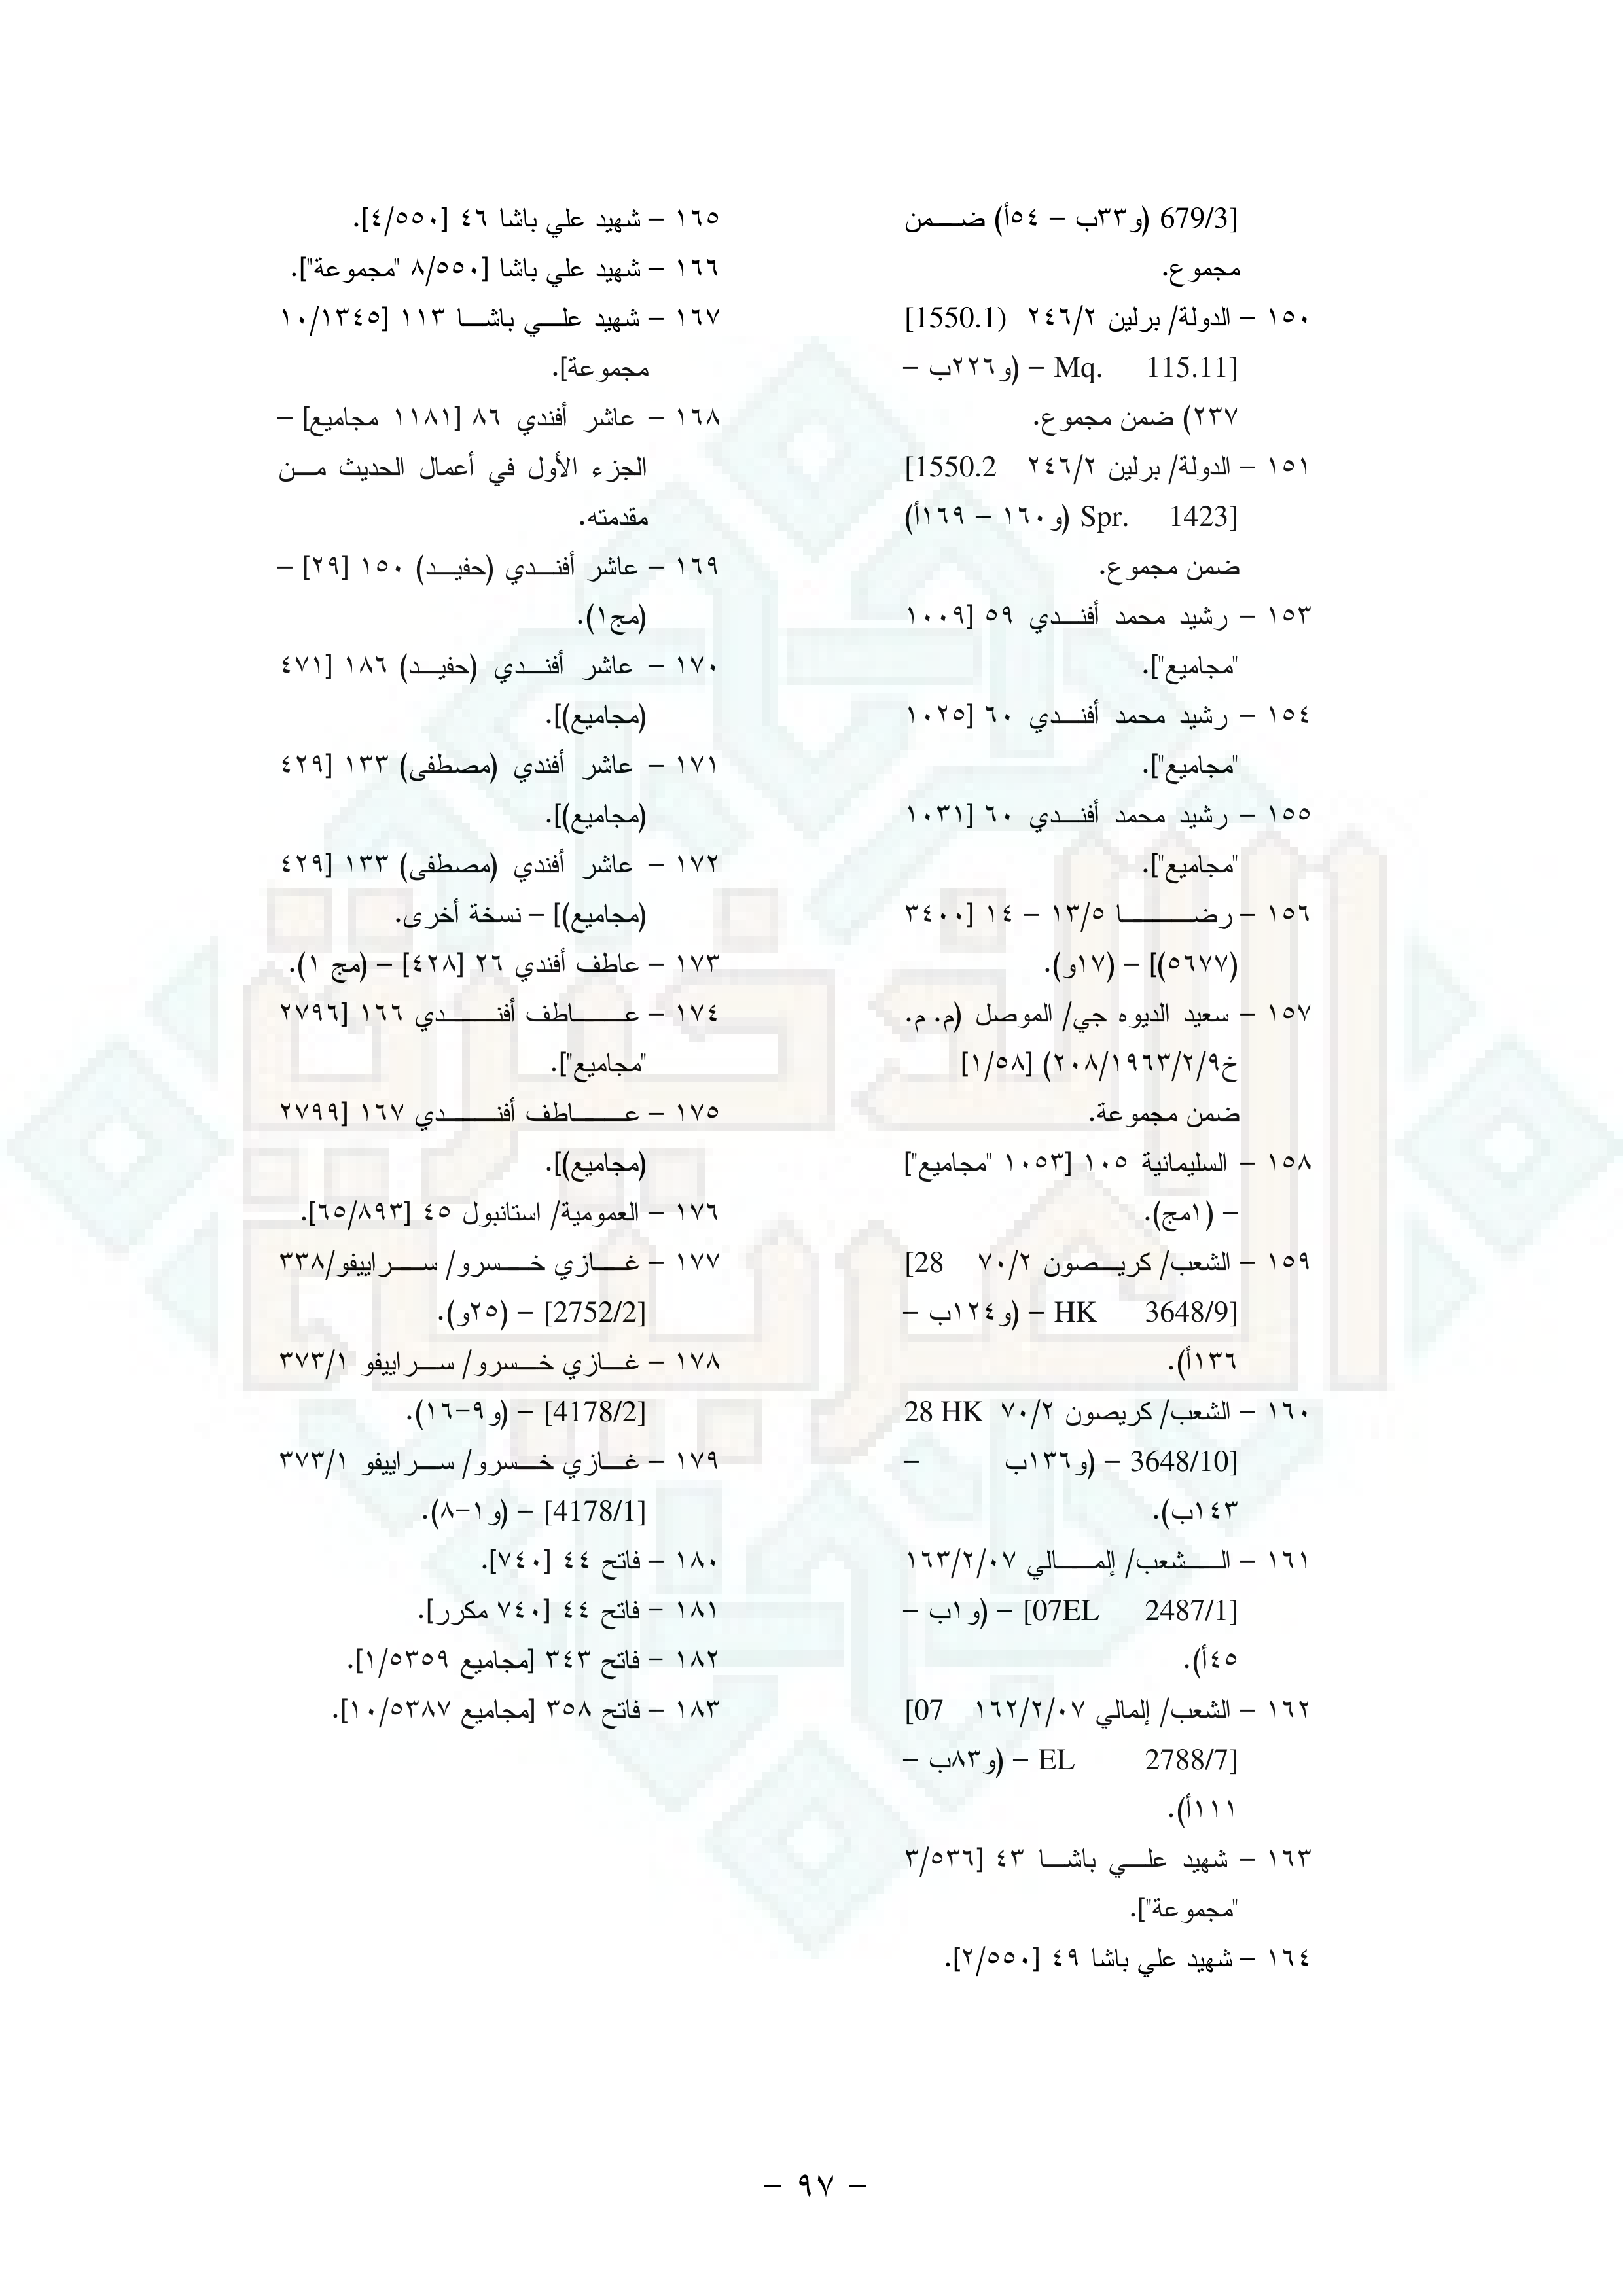 679/3] (و٣٣ب – ٥٤أ) ضمن
مجموع.
١٥٠ – الدولة/ برلين ٢٤٦/٢ (1550.1]
Mq. 115.11] – (و٢٢٦ب –
٢٣٧) ضمن مجموع.
١٥١ – الدولة/ برلين ٢٤٦/٢ 1550.2]
Spr. 1423] (و١٦٠ – ١٦٩أ)
ضمن مجموع.
١٥٣ – رشيد محمد أفندي ٥٩ [١٠٠٩
"مجاميع"].
١٥٤ – رشيد محمد أفندي ٦٠ [١٠٢٥
"مجاميع"].
١٥٥ – رشيد محمد أفندي ٦٠ [١٠٣١
"مجاميع"].
١٥٦ – رضا ١٣/٥ – ١٤ [٣٤٠٠
(٥٦٧٧)] – (١٧و).
١٥٧ – سعيد الديوه جي/ الموصل (م. م.
خ٢٠٨/١٩٦٣/٢/٩) [١/٥٨]
ضمن مجموعة.
١٥٨ – السليمانية ١٠٥ [١٠٥٣ "مجاميع"]
– (١مج).
١٥٩ – الشعب/ كريصون ٧٠/٢ 28]
HK 3648/9] – (و١٢٤ب –
١٣٦أ).
١٦٠ – الشعب/ كريصون ٧٠/٢ 28 HK
3648/10] – (و١٣٦ب –
١٤٣ب).
١٦١ – الشعب/ إلمالي ١٦٣/٢/٠٧
[07EL 2487/1] – (و١ب –
٤٥أ).
١٦٢ – الشعب/ إلمالي ١٦٢/٢/٠٧ 07]
EL 2788/7] – (و٨٣ب –
١١١أ).
١٦٣ – شهيد علي باشا ٤٣ [٣/٥٣٦
"مجموعة"].
١٦٤ – شهيد علي باشا ٤٩ [٢/٥٥٠].
١٦٥ – شهيد علي باشا ٤٦ [٤/٥٥٠].
١٦٦ – شهيد علي باشا [٨/٥٥٠ "مجموعة"].
١٦٧ – شهيد علي باشا ١١٣ [١٠/١٣٤٥
مجموعة].
١٦٨ – عاشر أفندي ٨٦ [١١٨١ مجاميع] –
الجزء الأول في أعمال الحديث من
مقدمته.
١٦٩ – عاشر أفندي (حفيد) ١٥٠ [٢٩] –
(مج١).
١٧٠ – عاشر أفندي (حفيد) ١٨٦ [٤٧١
(مجاميع)].
١٧١ – عاشر أفندي (مصطفى) ١٣٣ [٤٢٩
(مجاميع)].
١٧٢ – عاشر أفندي (مصطفى) ١٣٣ [٤٢٩
(مجاميع)] – نسخة أخرى.
١٧٣ – عاطف أفندي ٢٦ [٤٢٨] – (مج ١).
١٧٤ – عاطف أفندي ١٦٦ [٢٧٩٦
"مجاميع"].
١٧٥ – عاطف أفندي ١٦٧ [٢٧٩٩
(مجاميع)].
١٧٦ – العمومية/ استانبول ٤٥ [٦٥/٨٩٣].
١٧٧ – غازي خسرو/ سراييفو/٣٣٨
[2752/2] – (٢٥و).
١٧٨ – غازي خسرو/ سراييفو ٣٧٣/١
[4178/2] – (و٩-١٦).
١٧٩ – غازي خسرو/ سراييفو ٣٧٣/١
[4178/1] – (و١-٨).
١٨٠ – فاتح ٤٤ [٧٤٠].
١٨١ – فاتح ٤٤ [٧٤٠ مكرر].
١٨٢ – فاتح ٣٤٣ [مجاميع ١/٥٣٥٩].
١٨٣ – فاتح ٣٥٨ [مجاميع ١٠/٥٣٨٧].
– ٩٧ –